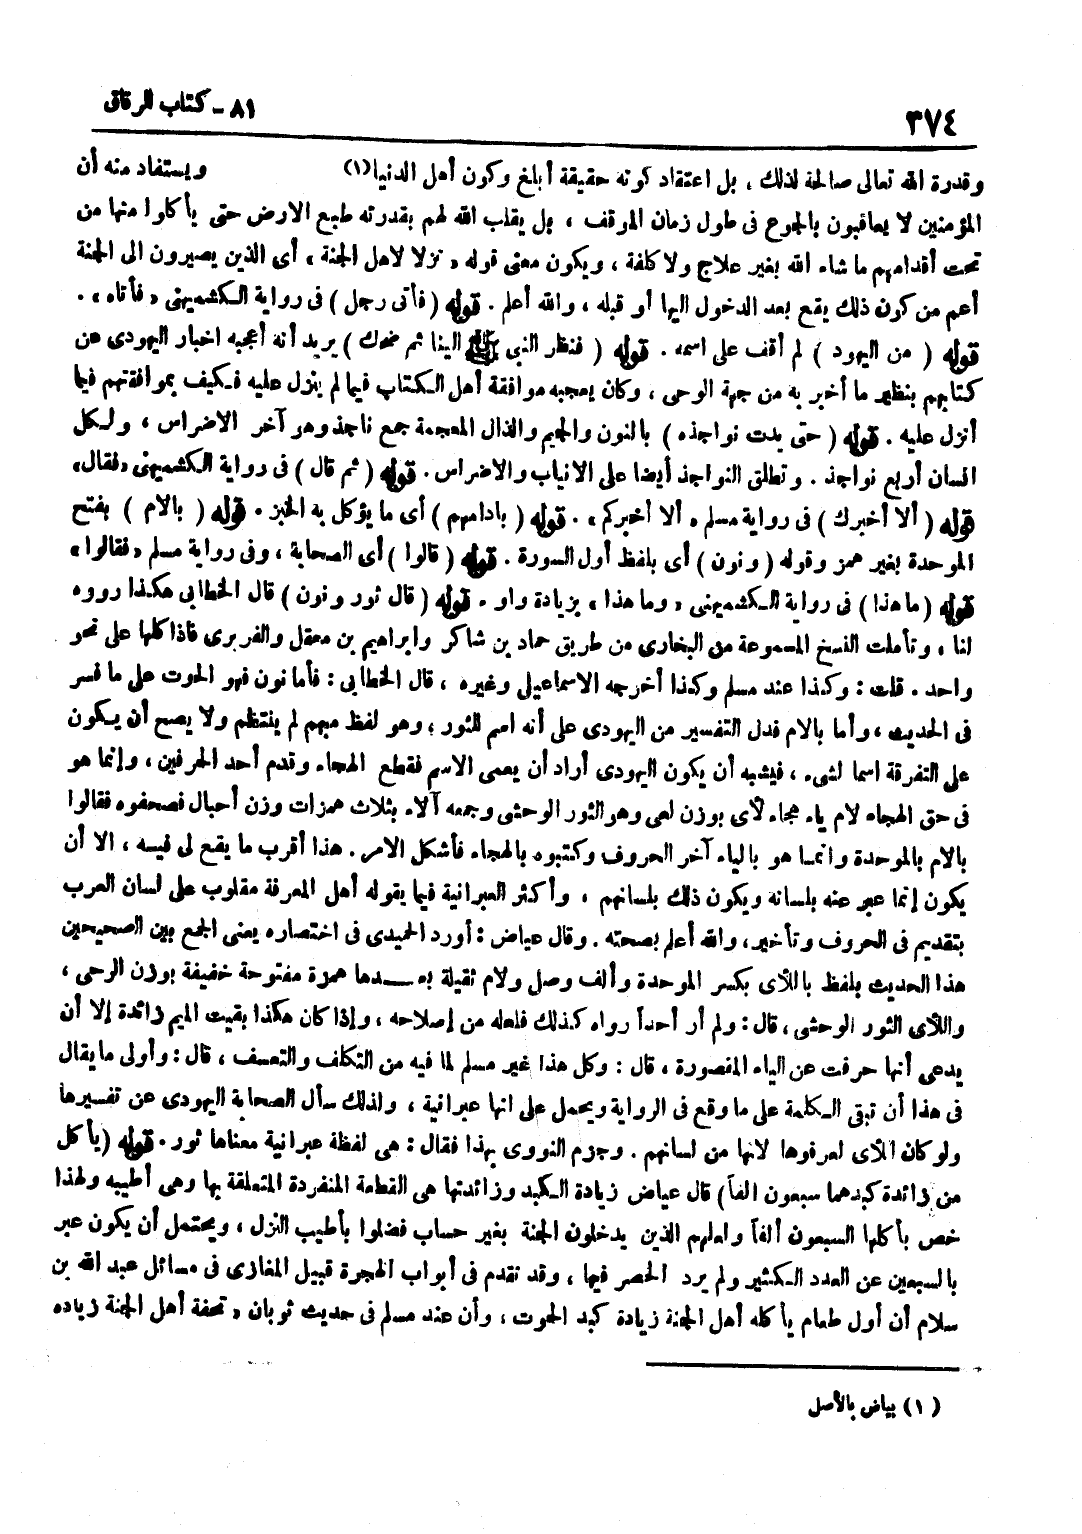 ٣٧٤
٨١ - كتاب الرقاق
وقدرة الله تعالى صالحة لذلك ، بل اعتقاد كونه حقيقة أبلغ وكون أهل الدنيا(١) ويستفاد منه أن
المؤمنين لا يعاقبون بالجوع فى طول زمان الموقف ، بل يقلب الله لهم بقدرته طبع الارض حتى يأكلوا منها من
تحت أقدامهم ما شاء الله بغير علاج ولا كلفة ، ويكون معنى قوله « نزلا لاهل الجنة ، أى الذين يصيرون الى الجنة
أعم من كون ذلك يقع بعد الدخول اليها أو قبله ، والله أعلم . قوله ( فأتى رجل ) فى رواية الكشميهنى « فأتاه » .
قوله ( من اليهود ) لم أقف على اسمه . قوله ( فنظر النبى ﷺ الينا ثم ضحك ) يريد أنه أعجبه اخبار اليهودى عن
كتابهم بنظير ما أخبر به من جهة الوحى ، وكان يعجبه موافقة أهل الكتاب فيما لم ينزل عليه فكيف بموافقتهم فيما
أنزل عليه . قوله ( حتى بدت نواجذه ) بالنون والجيم والذال المعجمة جمع ناجذ وهو آخر الاضراس ، ولكل
انسان أربع نواجذ . وتطلق النواجذ أيضا على الانياب والاضراس . قوله ( ثم قال ) فى رواية الكشميهنى « فقال»
قوله ( ألا أخبرك ) فى رواية مسلم « ألا أخبركم » . قوله ( بادامهم ) أى ما يؤكل به الخبز . قوله ( بالام ) بفتح
الموحدة بغير همز وقوله ( ونون ) أى بلفظ أول السورة . قوله ( قالوا ) أى الصحابة ، وفى رواية مسلم « فقالوا »
قوله ( ما هذا ) فى رواية الكشميهنى « وما هذا » بزيادة واو . قوله ( قال ثور ونون ) قال الخطابى هكذا رووه
لنا ، وتأملت النسخ المسموعة من البخارى من طريق حماد بن شاكر وابراهيم بن معقل والفربرى فاذا كلها على نحو
واحد . قلت : وكذا عند مسلم وكذا أخرجه الاسماعيلى وغيره ، قال الخطابى : فأما نون فهو الحوت على ما فسر
فى الحديث ، وأما بالام فدل التفسير من اليهودى على أنه اسم للثور ، وهو لفظ مبهم لم ينتظم ولا يصح أن يكون
على التفرقة اسما لشىء ، فيشبه أن يكون اليهودى أراد أن يعمى الاسم فقطع الهجاء وقدم أحد الحرفين ، وإنما هو
فى حق الهجاء لام ياء هجاء لأى بوزن لعى وهو الثور الوحشى وجمعه آلاء بثلاث همزات وزن أحبال فصحفوه فقالوا
بالام بالموحدة وانما هو بالياء آخر الحروف وكتبوه بالهجاء فأشكل الامر . هذا أقرب ما يقع لى فيه ، الا أن
يكون إنما عبر عنه بلسانه ويكون ذلك بلسانهم ، وأكثر العبرانية فيما يقوله أهل المعرفة مقلوب على لسان العرب
بتقديم فى الحروف وتأخير ، والله أعلم بصحته . وقال عياض : أورد الحميدى فى اختصاره يعنى الجمع بين الصحيحين
هذا الحديث بلفظ باللأى بكسر الموحدة وألف وصل ولام ثقيلة بعدها همزة مفتوحة خفيفة بوزن الرحى ،
واللأى الثور الوحشى ، قال : ولم أر أحداً رواه كذلك فلعله من إصلاحه ، وإذا كان هكذا بقيت الميم زائدة إلا أن
يدعى أنها حرفت عن الياء المقصورة ، قال : وكل هذا غير مسلم لما فيه من التكلف والتعسف ، قال : وأولى ما يقال
فى هذا أن تبقى الكلمة على ما وقع فى الرواية ويحمل على انها عبرانية ، ولذلك سأل الصحابة اليهودى عن تفسيرها
ولو كان اللأى لعرفوها لانها من لسانهم . وجزم النووى بهذا فقال : هى لفظة عبرانية معناها ثور . قوله ( يأكل
من زائدة كبدهما سبعون الفاً ) قال عياض زيادة الكبد وزائدتها هى القطعة المنفردة المتعلقة بها وهى أطيبه ولهذا
خص بأكلها السبعون ألفاً ولعلهم الذين يدخلون الجنة بغير حساب فضلوا بأطيب النزل ، ويحتمل أن يكون عبر
بالسبعين عن العدد الكثير ولم يرد الحصر فيها ، وقد تقدم فى أبواب الهجرة قبيل المغازى فى مسائل عبد الله بن
سلام أن أول طعام يأكله أهل الجنة زيادة كبد الحوت ، وأن عند مسلم فى حديث ثوبان « تحفة أهل الجنة زياده
(١) بياض بالأصل